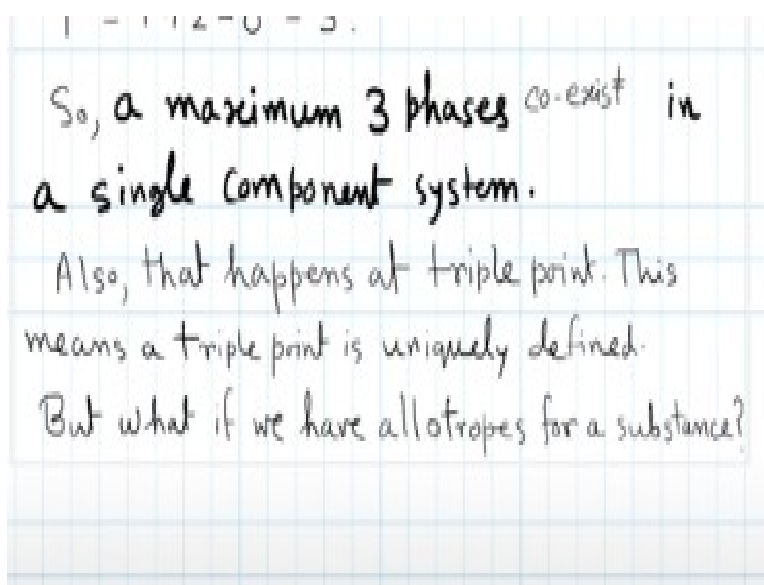 So, a maximum 3 phases co-exist in
a single component system.
Also, that happens at triple point. This
means a triple point is uniquely defined.
But what if we have allotropes for a substance?